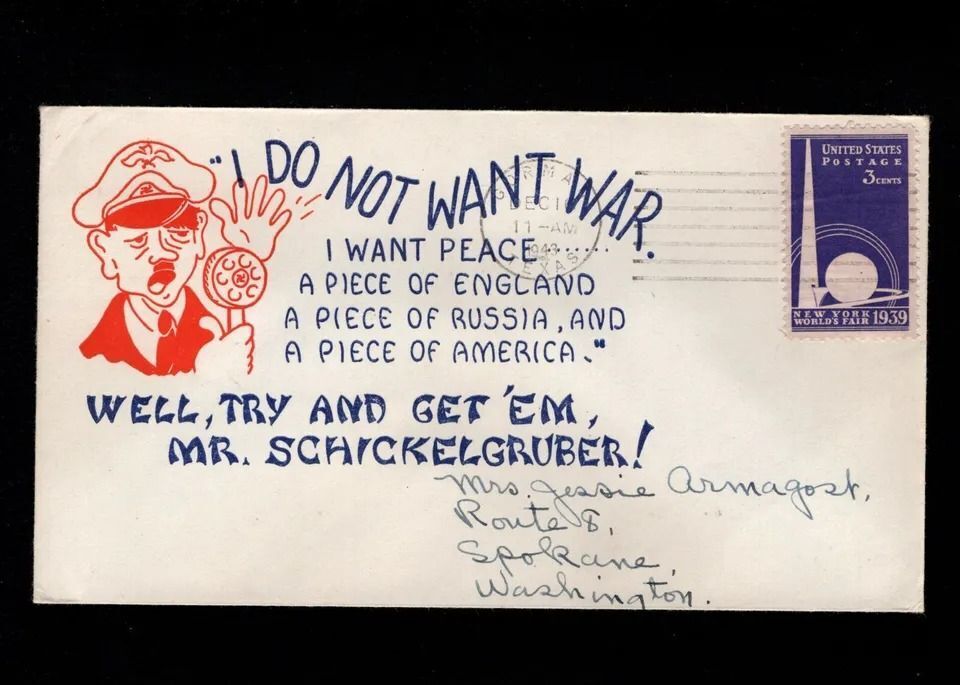 "I DO NOT WANT WAR.
I WANT PEACE.......
A PIECE OF ENGLAND
A PIECE OF RUSSIA, AND
A PIECE OF AMERICA."
WELL, TRY AND GET 'EM,
MR. SCHICKELGRUBER!
GORMAN
DEC 1
11-AM
1943
TEXAS
UNITED STATES
POSTAGE
3 CENTS
NEW YORK
WORLD'S FAIR 1939
Mrs. Jessie Armagost,
Route 8,
Spokane,
Washington.